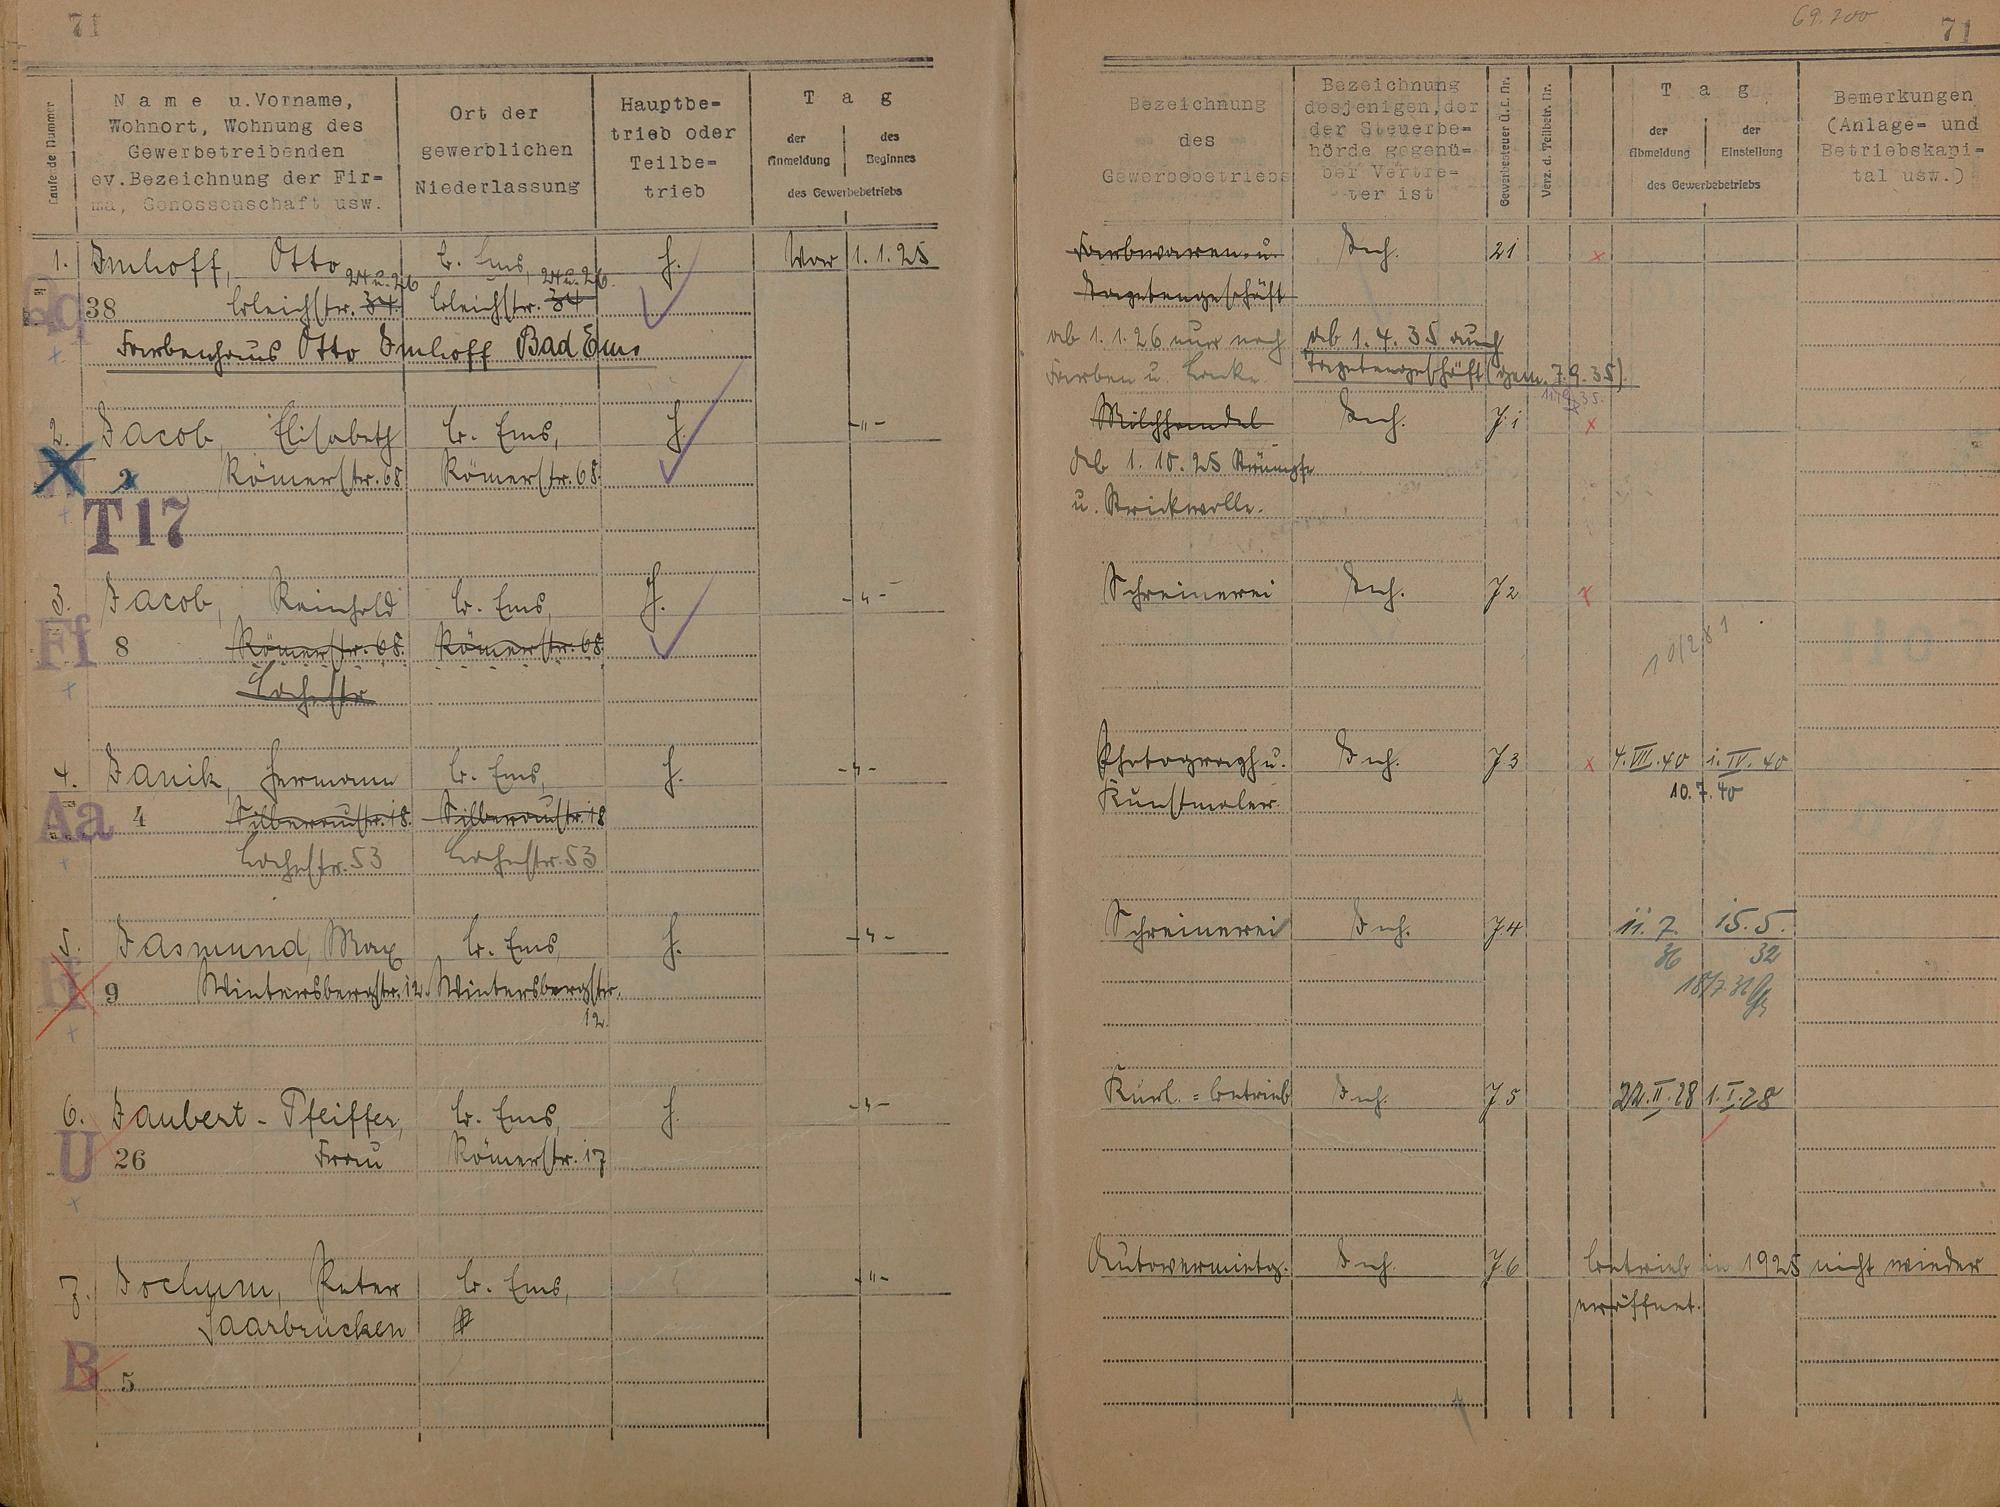 71
Laufende Nummer
Name u. Vorname,
Wohnort, Wohnung des
Gewerbetreibenden
ev. Bezeichnung der Fir-
ma, Genossenschaft usw.
Ort der
gewerblichen
Niederlassung
Hauptbe-
trieb oder
Teilbe-
trieb
Tag
der
Anmeldung
des
Beginnes
des Gewerbebetriebs
1. Imhoff, Otto B. Ems, H. Vor 1.1.25
24 u. 26 24 u. 26.
38 Bleichstr. 34. Bleichstr. 34
Farbenhaus Otto Imhoff Bad Ems
2. Jacob, Elisabeth B. Ems, H. -"-
2 Römerstr. 68 Römerstr. 68.
T 17
3. Jacob, Reinhold B. Ems, H. -"-
Ff 8 Römerstr. 68. Römerstr. 68.
4. Janik, Hermann B. Ems, H. -"-
Aa 4 Silberaustr. 18. Silberaustr. 18
53 53
5. Jasmund, Max B. Ems, H. -"-
9 Wintersbergstr. 12. Wintersbergstr.
12.
6. Jaubert - Pfeiffer, B. Ems, H. -"-
U 26 Frau Römerstr. 17
7. Jochum, Peter B. Ems, -"-
Saarbrücken
B 5
69.200
71
Bezeichnung
des
Gewerbebetriebs
Bezeichnung
desjenigen, der
der Steuerbe-
hörde gegenü-
ber Vertre-
ter ist
Gewerbesteuer Ü.L. Nr.
Verz. d. Teilbetr. Nr.
Tag
der
Abmeldung
der
Einstellung
des Gewerbebetriebs
Bemerkungen
(Anlage- und
Betriebskapi-
tal usw.)
Farbwaren- u. Inh. 21 x
Tapetengeschäft
ab 1.1.26 nur noch ab 1.4.35 auch
Farben u. Lacke. Tapetengeschäft (gem. 7.9.35).
Milchhandel Inh. J.1 x
Ab 1.10.25 Strümpfe
u. Strickwolle.
Schreinerei Inh. J2 x
Photograph u. Inh. J3 x 4.VII.40 1.IV.40
Kunstmaler. 10.7.40
Schreinerei Inh. J4 11.7. 15.5.
32
Kurl. = Betrieb Inh. J5 22.II.28 1.I.28
Autovermietg. Inh. J.6 Betrieb in 1925 nicht wieder
eröffnet.